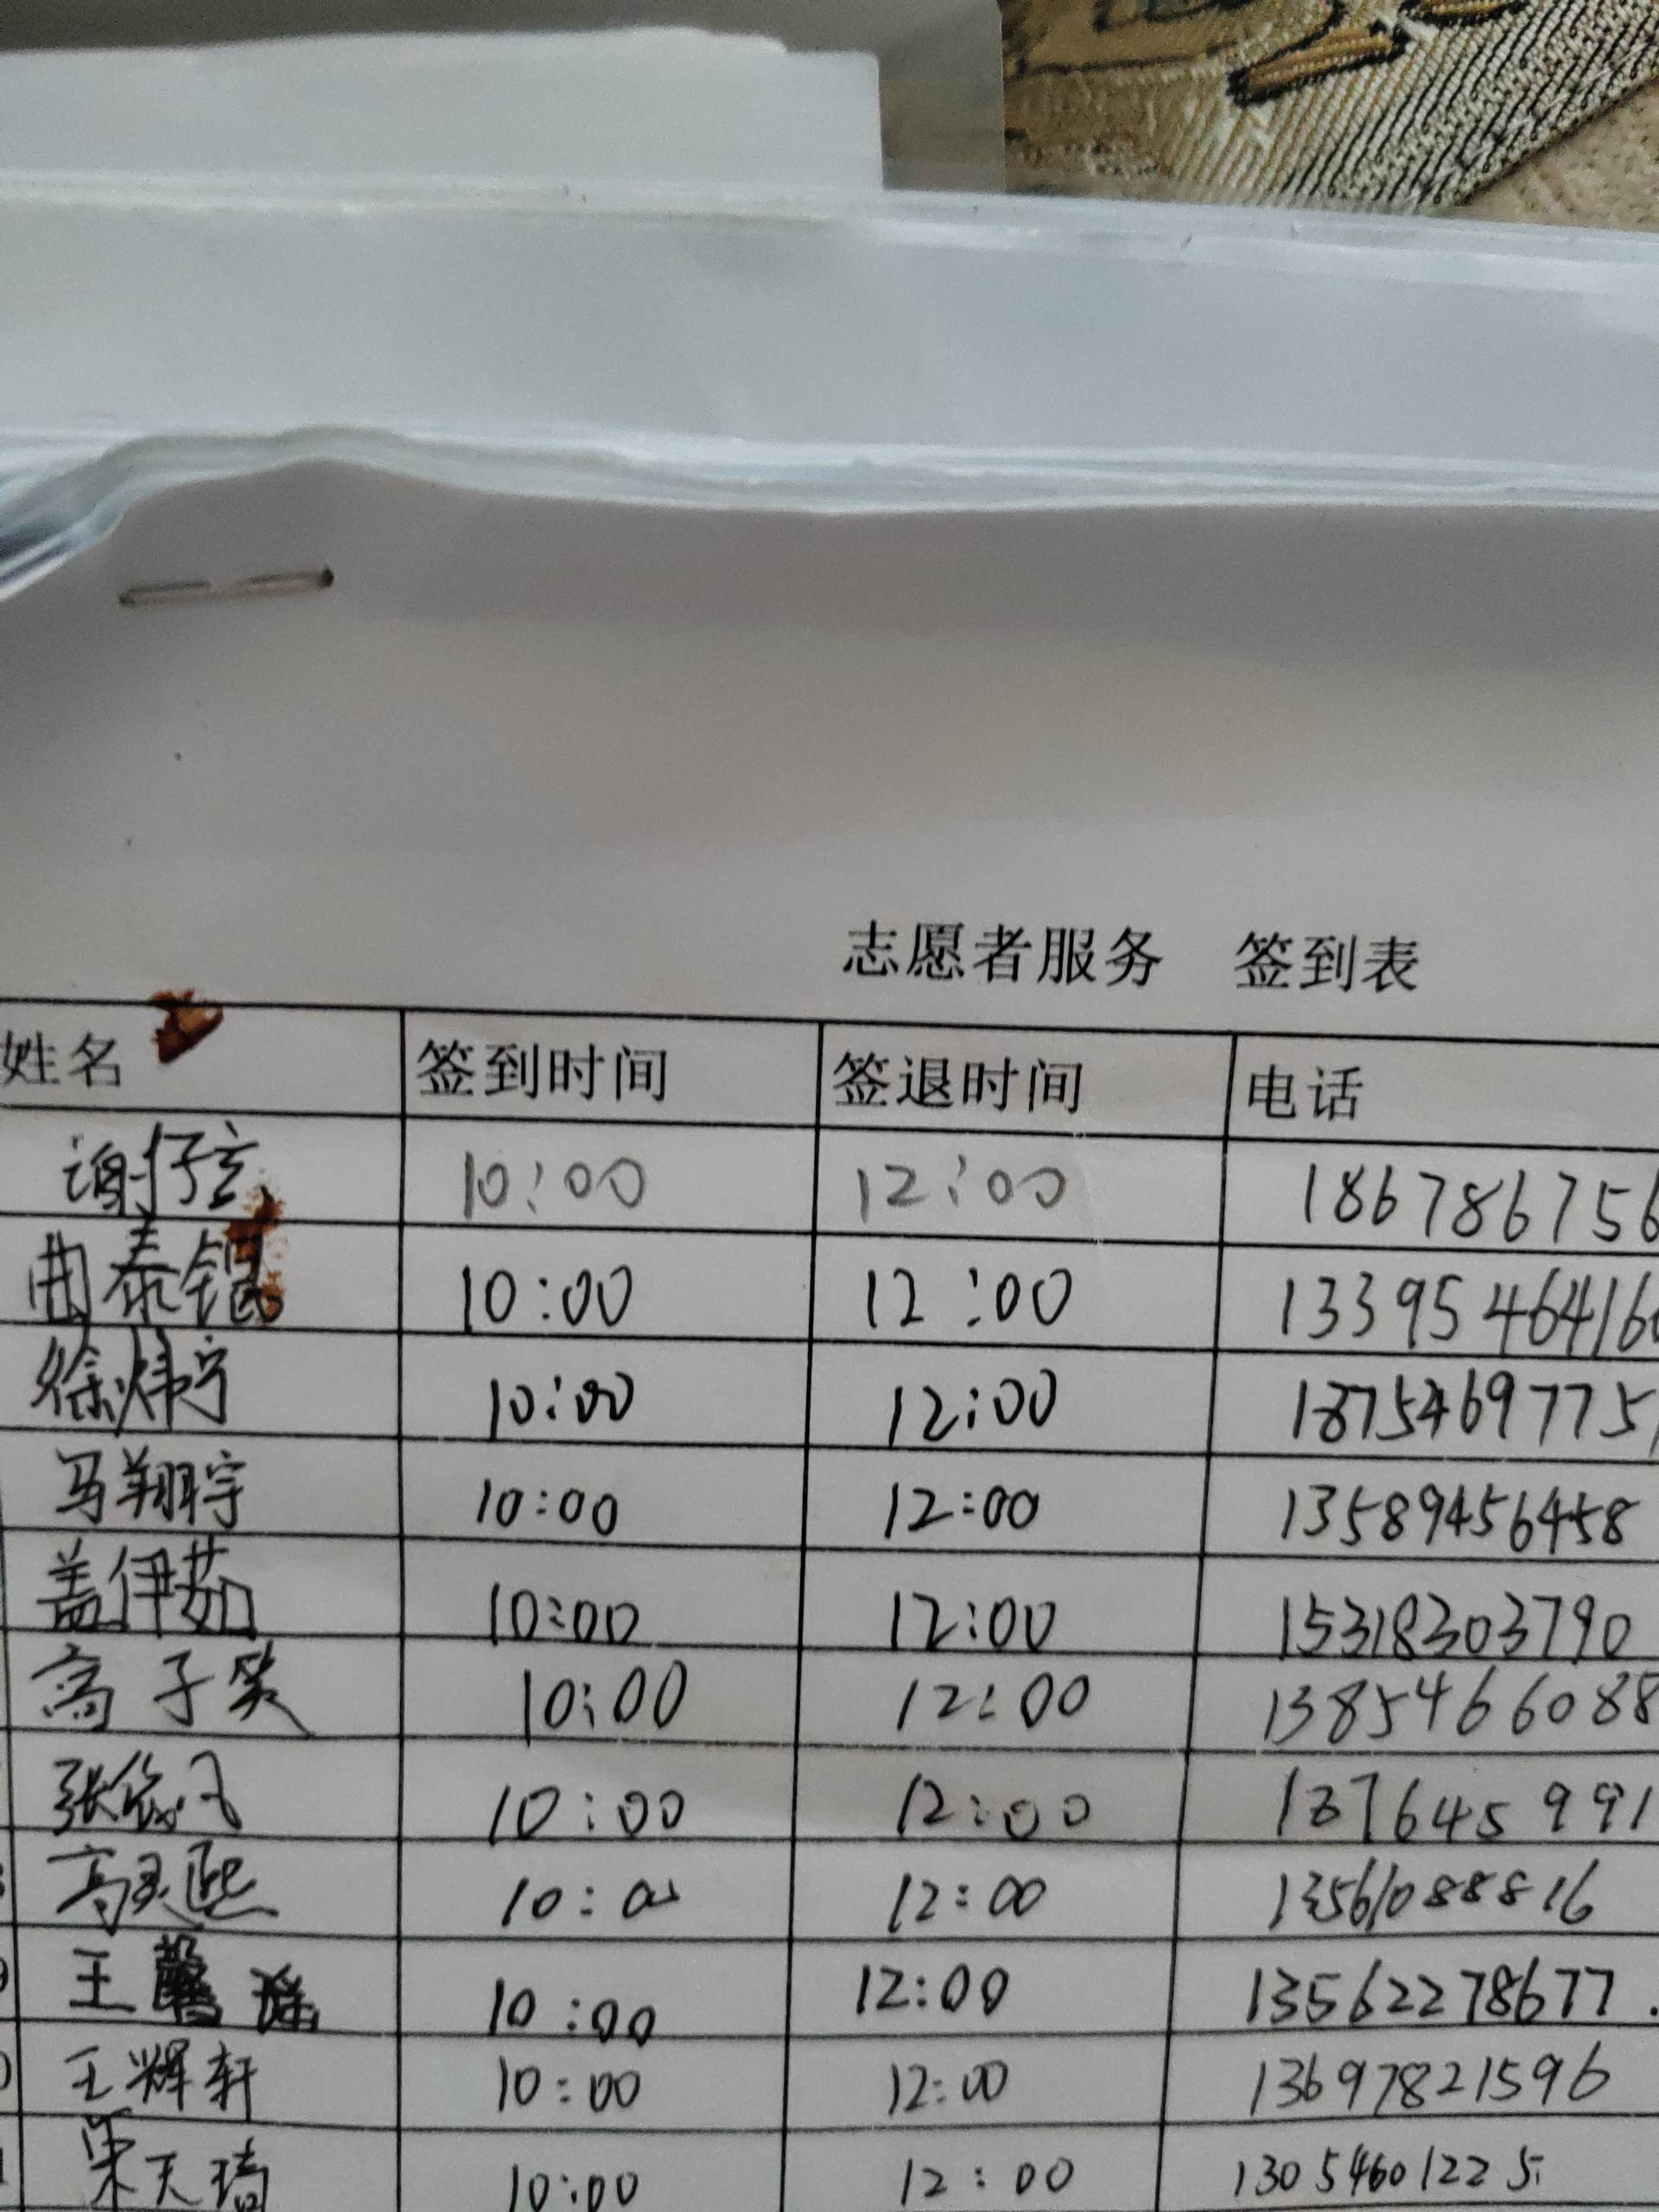 志愿者服务 签到表
姓名 签到时间 签退时间 电话
谢仔玄 10:00 12:00 186786756
曲泰 10:00 12:00 1339546416
徐炜宁 10:00 12:00 1875469775
马翔宇 10:00 12:00 13589456458
盖伊茹 10:00 12:00 15318303790
高子笑 10:00 12:00 1385466088
张 10:00 12:00 137645991
高灵熙 10:00 12:00 13561088816
王馨瑶 10:00 12:00 13562278677.
王辉轩 10:00 12:00 13697821596
宋天琦 10:00 12:00 13054601225